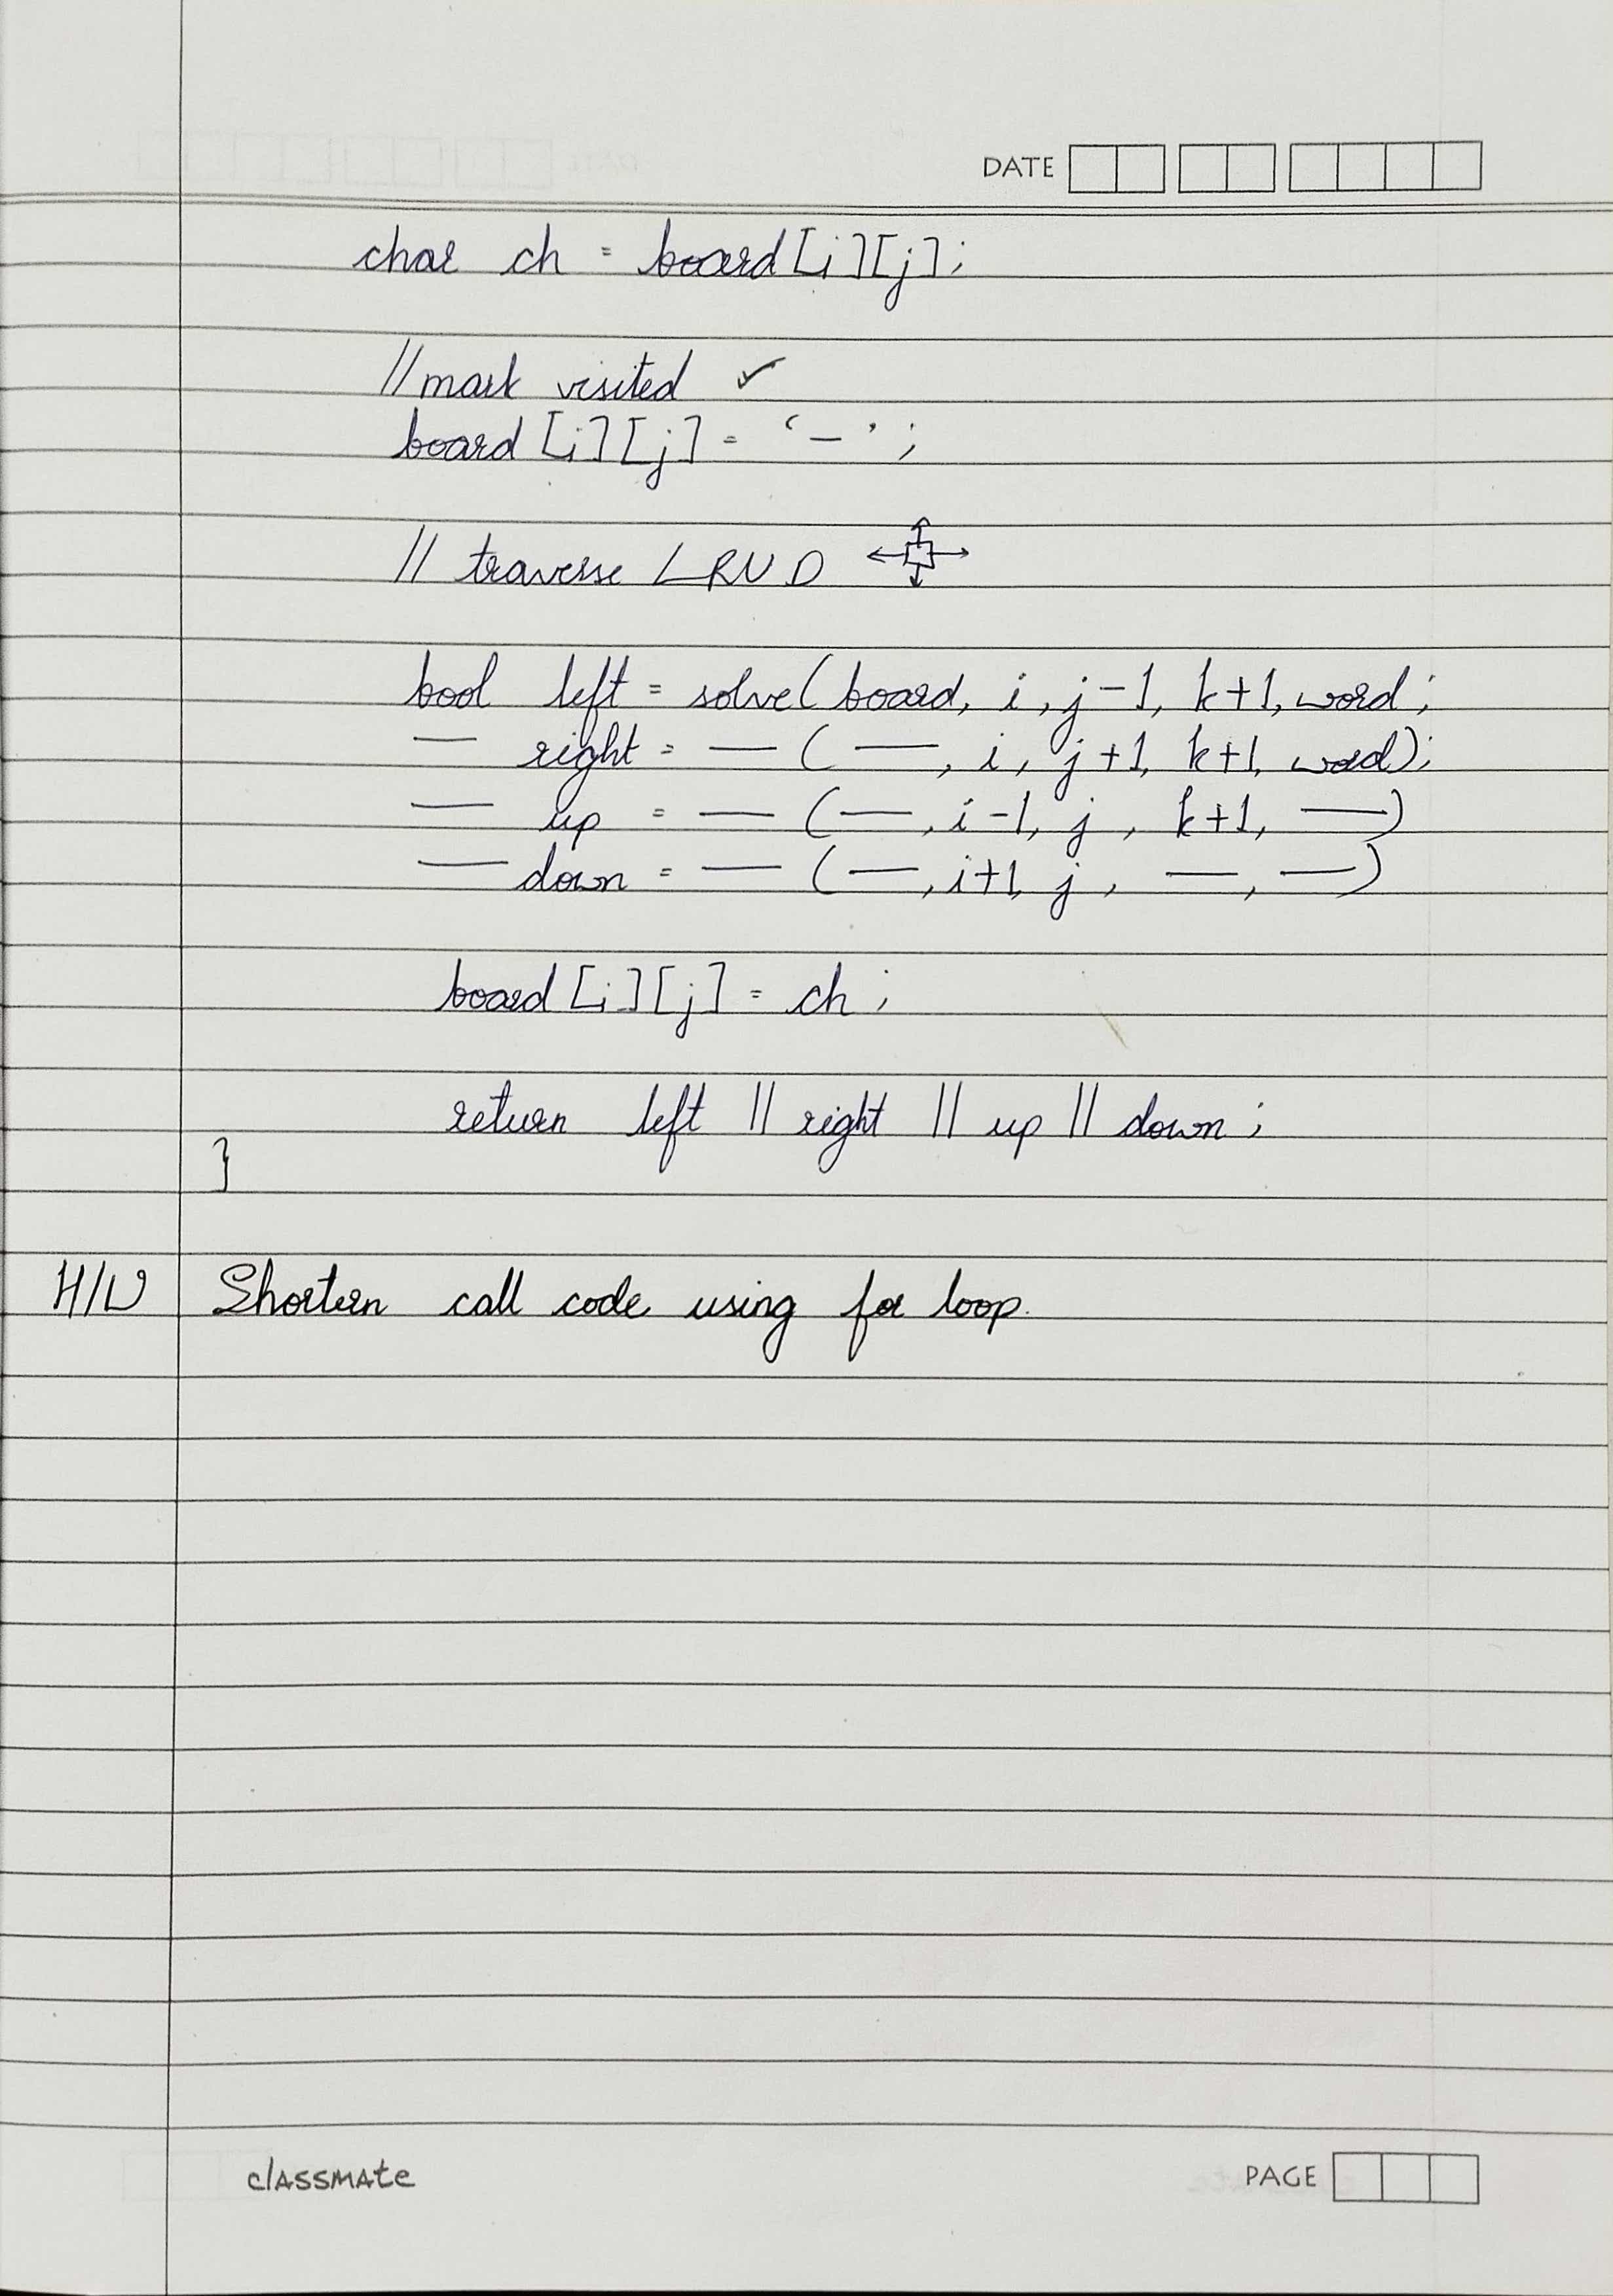 DATE
char ch = board[i][j];
//mark visited ✓
board[i][j] = '-';
// traverse LRUD
bool left = solve(board, i, j-1, k+1, word;
— right = — ( —, i, j+1, k+1, word);
— up = — ( —, i-1, j, k+1, —)
— down = — ( —, i+1, j, —, —)
board[i][j] = ch;
return left || right || up || down;
}
H/W Shorten call code using for loop.
classmate PAGE